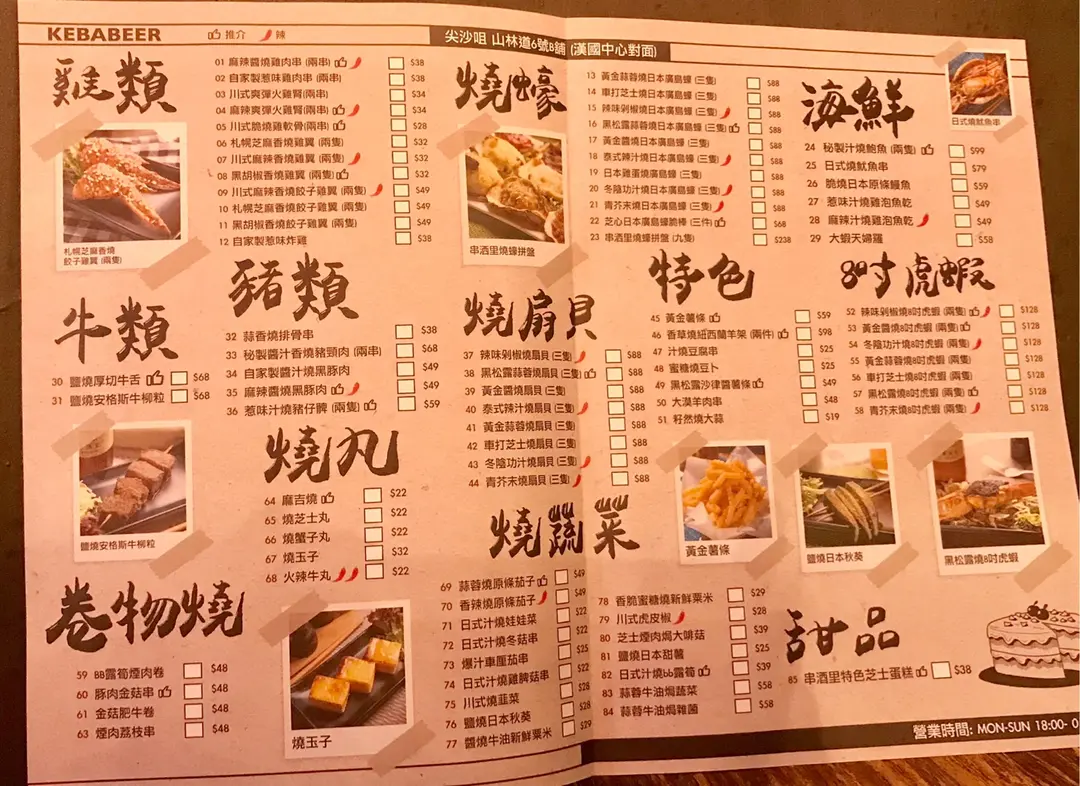 KEBABEER
推介
辣
尖沙咀 山林道6號B舖 (漢國中心對面)
雞類
01 麻辣醬燒雞肉串 (兩串) $38
02 自家製惹味雞肉串 (兩串) $38
03 川式爽彈火雞腎(兩串) $34
04 麻辣爽彈火雞腎 (兩串) $34
05 川式脆燒雞軟骨(兩串) $28
06 札幌芝麻香燒雞翼 (兩隻) $32
07 川式麻辣香燒雞翼 (兩隻) $32
08 黑胡椒香燒雞翼 (兩隻) $32
09 川式麻辣香燒餃子雞翼 (兩隻) $49
10 札幌芝麻香燒餃子雞翼 (兩隻) $49
11 黑胡椒香燒餃子雞翼 (兩隻) $49
12 自家製惹味炸雞 $38
札幌芝麻香燒
餃子雞翼 (兩隻)
牛類
30 鹽燒厚切牛舌 $68
31 鹽燒安格斯牛柳粒 $68
鹽燒安格斯牛柳粒
豬類
32 蒜香燒排骨串 $38
33 秘製醬汁香燒豬頸肉 (兩串) $68
34 自家製醬汁燒黑豚肉 $49
35 麻辣醬燒黑豚肉 $49
36 惹味汁燒豬仔髀 (兩隻) $59
燒丸
64 麻吉燒 $22
65 燒芝士丸 $22
66 燒蟹子丸 $22
67 燒玉子 $32
68 火辣牛丸 $22
卷物燒
59 BB露筍煙肉卷 $48
60 豚肉金菇串 $48
61 金菇肥牛卷 $48
63 煙肉荔枝串 $48
燒玉子
燒蠔
13 黃金蒜蓉燒日本廣島蠔 (三隻) $88
14 車打芝士燒日本廣島蠔 (三隻) $88
15 辣味剁椒燒日本廣島蠔 (三隻) $88
16 黑松露蒜蓉燒日本廣島蠔 (三隻) $88
17 黃金醬燒日本廣島蠔 (三隻) $88
18 泰式辣汁燒日本廣島蠔 (三隻) $88
19 日本雞蛋燒廣島蠔 (三隻) $88
20 冬陰功汁燒日本廣島蠔 (三隻) $88
21 青芥末燒日本廣島蠔 (三隻) $88
22 芝心日本廣島蠔脆棒 (三件) $68
23 串酒里燒蠔拼盤 (九隻) $238
串酒里燒蠔拼盤
燒扇貝
37 辣味剁椒燒扇貝 (三隻) $88
38 黑松露蒜蓉燒扇貝 (三隻) $88
39 黃金醬燒扇貝 (三隻) $88
40 泰式辣汁燒扇貝 (三隻) $88
41 黃金蒜蓉燒扇貝 (三隻) $88
42 車打芝士燒扇貝 (三隻) $88
43 冬陰功汁燒扇貝 (三隻) $88
44 青芥末燒扇貝 (三隻) $88
燒蔬菜
69 蒜蓉燒原條茄子 $49
70 香辣燒原條茄子 $49
71 日式汁燒娃娃菜 $22
72 日式汁燒冬菇串 $22
73 爆汁車厘茄串 $25
74 日式汁燒雞髀菇串 $28
75 川式燒韮菜 $22
76 鹽燒日本秋葵 $28
77 醬燒牛油新鮮粟米 $29
78 香脆蜜糖燒新鮮粟米 $29
79 川式虎皮椒 $28
80 芝士煙肉焗大啡菇 $39
81 鹽燒日本甜薯 $25
82 日式汁燒bb露筍 $39
83 蒜蓉牛油焗蔬菜 $58
84 蒜蓉牛油焗雜菌 $58
海鮮
日式燒魷魚串
24 秘製汁燒鮑魚 (兩隻) $99
25 日式燒魷魚串 $79
26 脆燒日本原條鰻魚 $59
27 惹味汁燒雞泡魚乾 $49
28 麻辣汁燒雞泡魚乾 $49
29 大蝦天婦羅 $58
特色
45 黃金薯條 $59
46 香草燒紐西蘭羊架 (兩件) $98
47 汁燒豆腐串 $25
48 蜜糖燒豆卜 $25
49 黑松露沙律醬薯條 $69
50 大漠羊肉串 $48
51 籽然燒大蒜 $19
8吋虎蝦
52 辣味剁椒燒8吋虎蝦 (兩隻) $128
53 黃金醬燒8吋虎蝦 (兩隻) $128
54 冬陰功汁燒8吋虎蝦 (兩隻) $128
55 黃金蒜蓉燒8吋虎蝦 (兩隻) $128
56 車打芝士燒8吋虎蝦 (兩隻) $128
57 黑松露燒8吋虎蝦 (兩隻) $128
58 青芥末燒8吋虎蝦 (兩隻) $128
黃金薯條
鹽燒日本秋葵
黑松露燒8吋虎蝦
甜品
85 串酒里特色芝士蛋糕 $38
營業時間: MON-SUN 18:00- 0